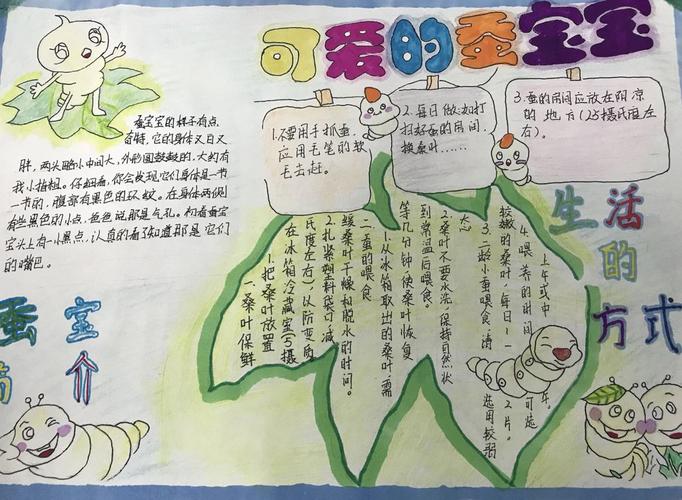 可爱的蚕宝宝
蚕宝宝的样子有点
奇特，它的身体又白又
胖，两头略小中间大，外形圆鼓鼓的，大约有
我小指粗。仔细看，你会发现它们身体是一节
一节的，腹部有黑色的环纹。在身体两侧
有些黑色的小点，爸爸说那是气孔。初看蚕宝
宝头上有一小黑点，认真的看了知道那是它们
的嘴巴。
1.不要用手抓蚕，
应用毛笔的软
毛去赶。
2.每日做：如打
扫好蚕的房间，
换桑叶……
3.蚕的房间应放在阴凉
的地方（25摄氏度左
右）。
蚕宝
简介
生活
的
方式
一、桑叶保鲜
1.把桑叶放置
在冰箱冷藏室（5摄
氏度左右），以防变质
2.扎紧塑料袋可减
缓桑叶干燥和脱水的时间。
二、蚕的喂食
1.从冰箱取出的桑叶，需
等几分钟，使桑叶恢复
到常温后喂食。
2.桑叶不要水洗，保持自然状
态
3.二龄小蚕喂食，请
选用较弱
较嫩的桑叶，每日1—
2片。
4.喂养的时间，可选
上午或中
午。